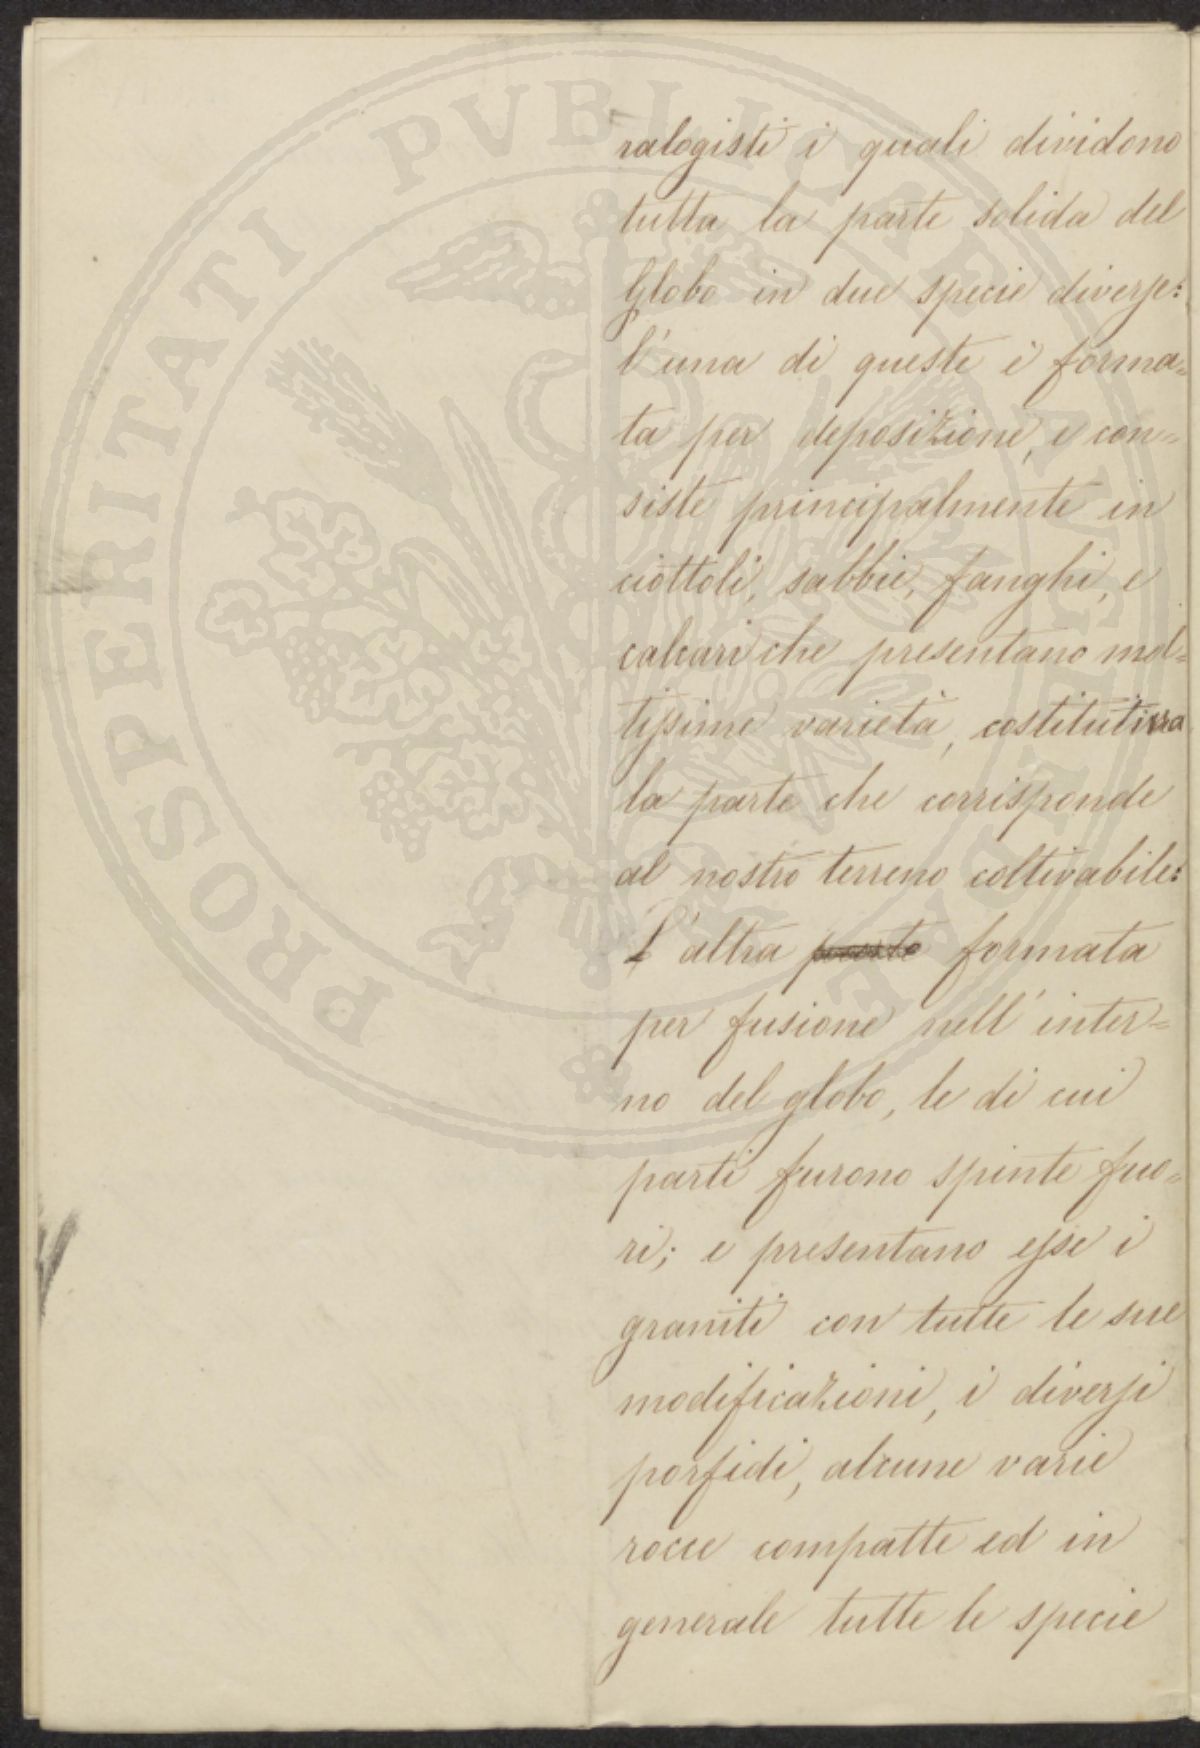 PROSPERITATI PVBLICAE AVGENDAE
ralogisti i quali dividono
tutta la parte solida del
Globo in due specie diverse:
l'una di queste è forma=
ta per deposizione, e con=
siste principalmente in
ciottoli, sabbie, fanghi, e
calcari che presentano mol=
tissime varietà, costitutiva
la parte che corrisponde
al nostro terreno coltivabile:
L'altra parte formata
per fusione nell'inter=
no del globo, le di cui
parti furono spinte fuo=
ri; e presentano esse i
graniti con tutte le sue
modificazioni, i diversi
porfidi, alcune varie
rocce compatte ed in
generale tutte le specie